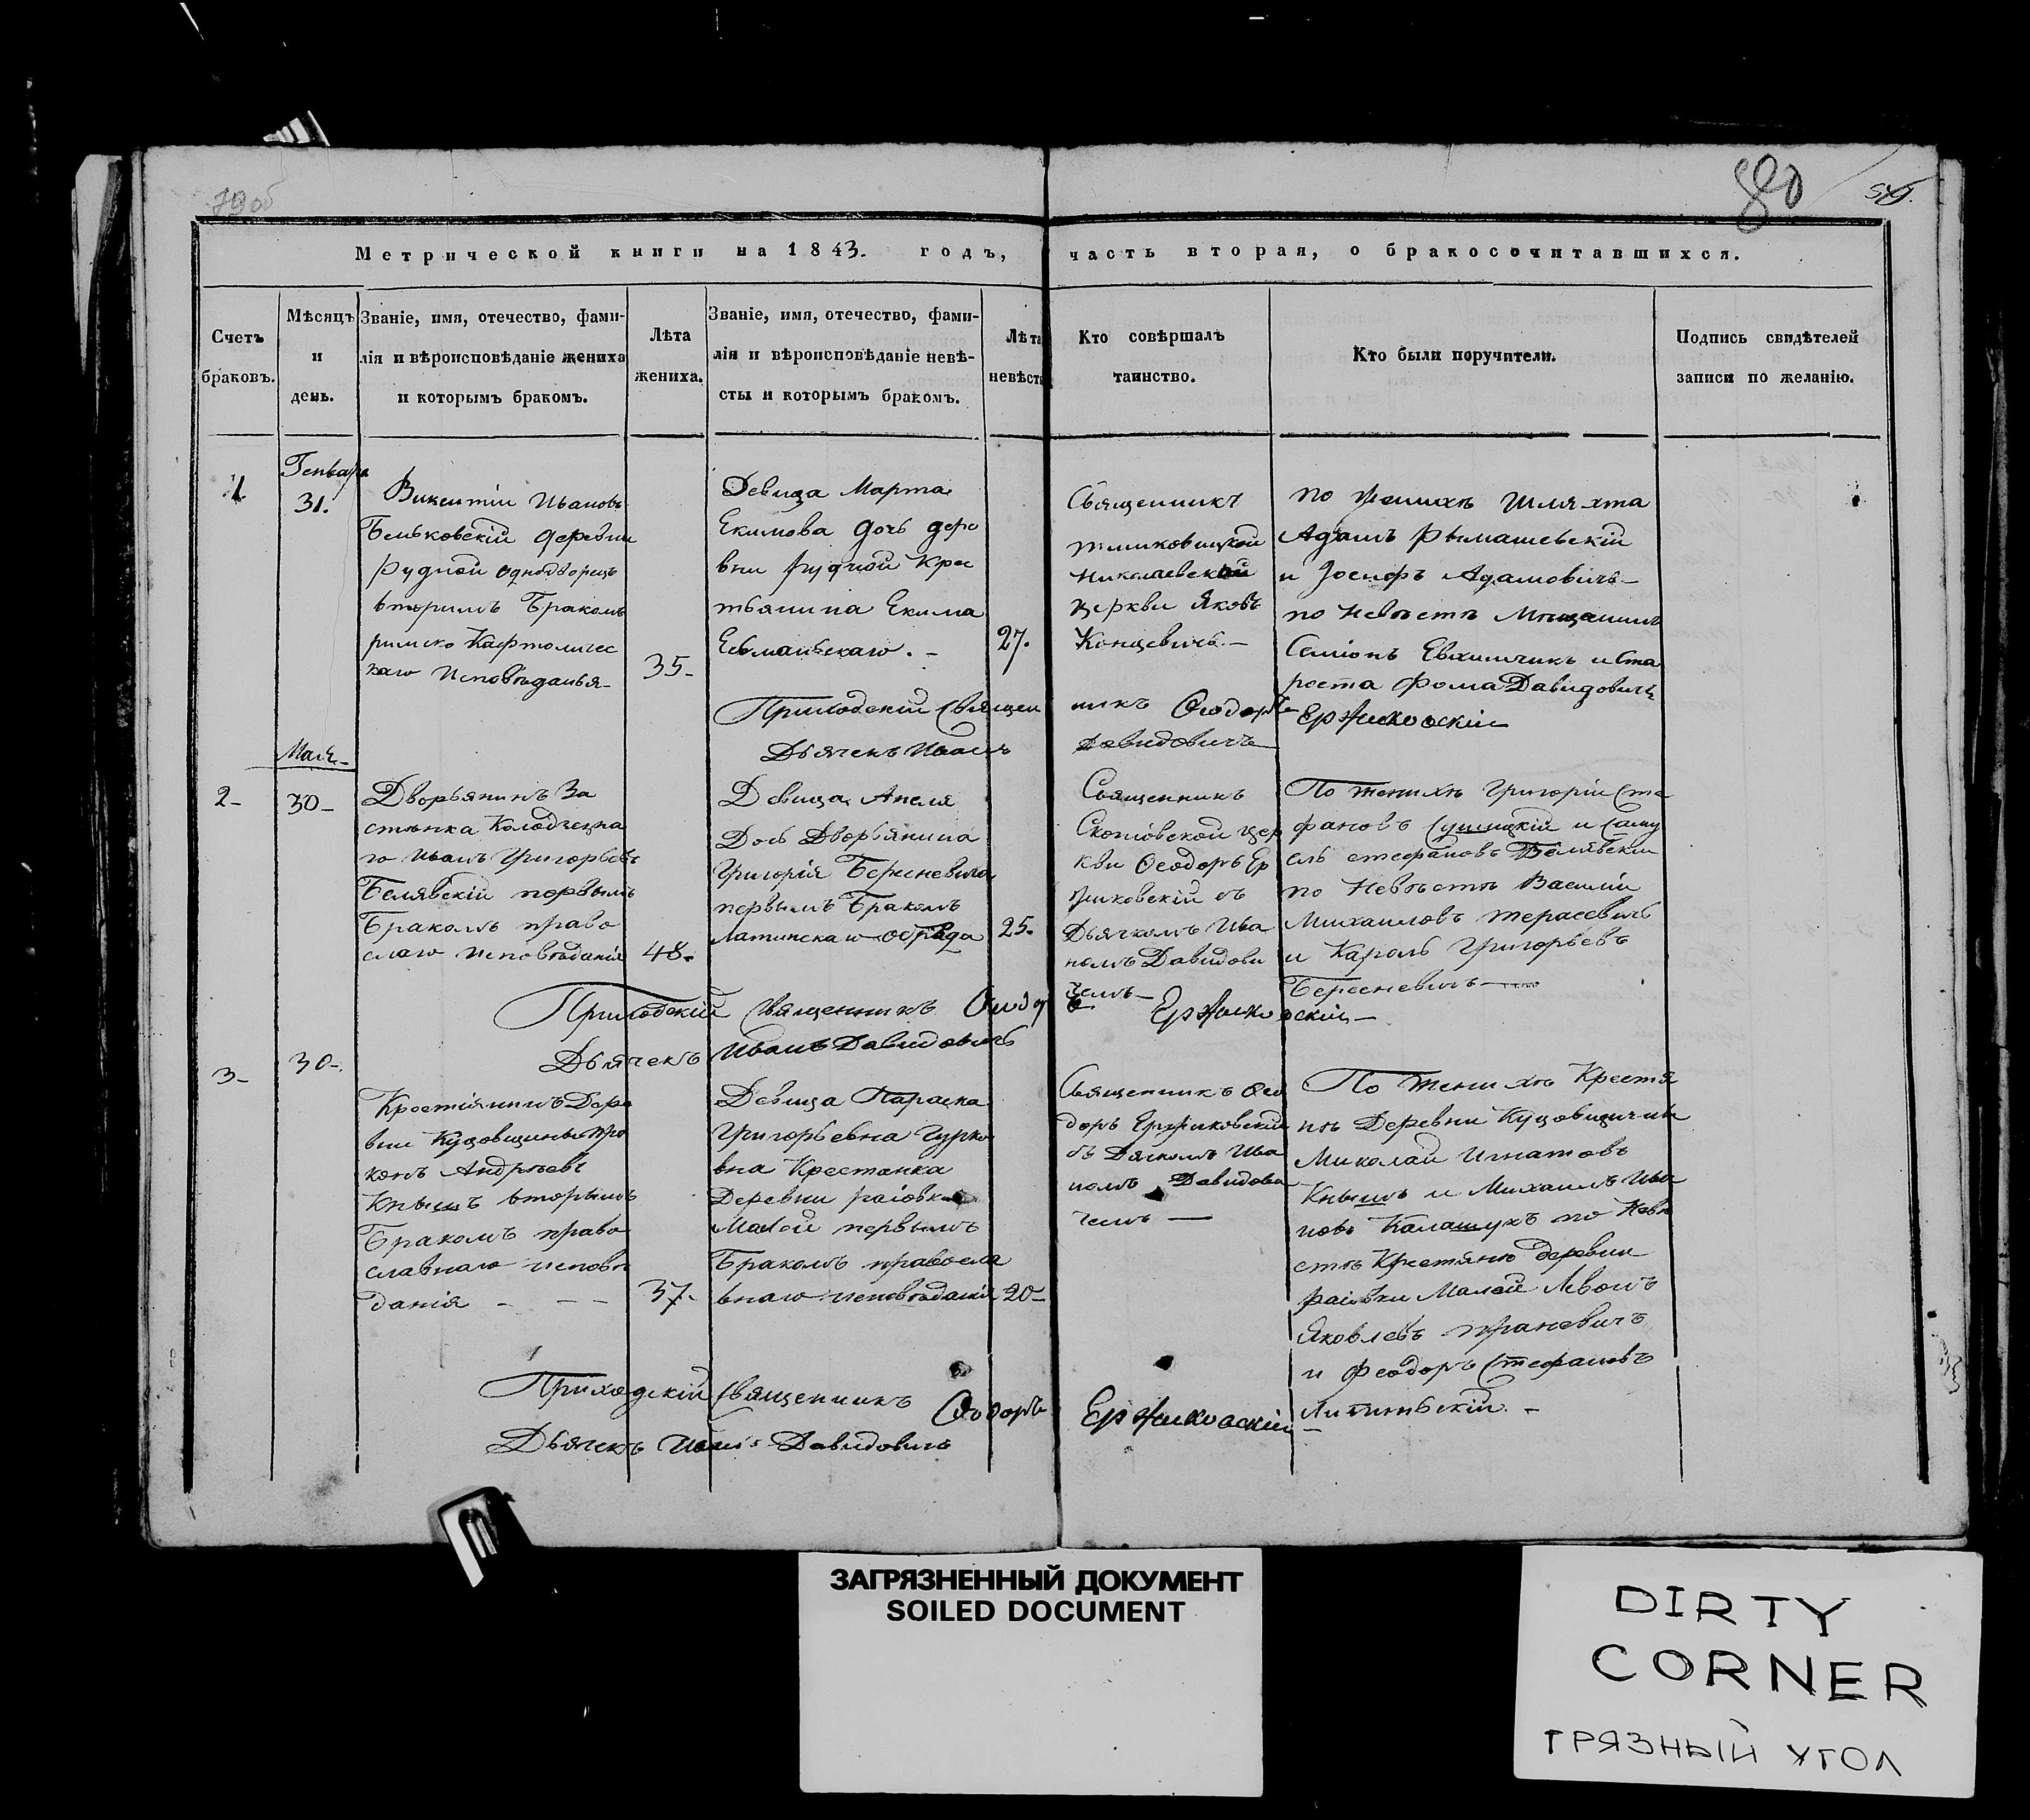 79об
80
Метрической книги на 1843. годъ, часть вторая, о бракосочитавшихся.
Счетъ
браковъ.
Мѣсяцъ
и
день.
Званіе, имя, отечество, фами-
лія и вѣроисповѣданіе жениха
и которымъ бракомъ.
Лѣта
жениха.
Званіе, имя, отечество, фами-
лія и вѣроисповѣданіе невѣ-
сты и которымъ бракомъ.
Лѣта
невѣсты
Кто совѣршалъ
таинство.
Кто были поручители.
Подпись свидѣтелей
записи по желанію.
1.
Генваря
31.
Викентіи Ивановъ
Бельковскій деревни
Рудной однодворецъ
вторымъ Бракомъ
римско Кафтоличес
каго Исповѣданья
35.
Девица Марта
Екимова дочь дере
вни Рудной Крес
тьянина Екима
27.
Священникъ
Николаевской
церкви Яковъ
Концевичь.
по женихѣ Шляхта
Адамъ Рымашевскій
и Іосифъ Адамовичь
по невѣстѣ Мѣщанинъ
Семіонъ Евхимчикъ и Ста
роста Фома Давидовичь
Приходскій Священникъ Ѳеодоръ Ержиковскій
Дьячекъ Иванъ Давидовичъ
Мая
2
30
Дворьянинъ За
стѣнка Колодчезна
го Иванъ Григорьевъ
Белявскій первымъ
Бракомъ право
слаго исповѣданія
48.
Девица Анеля
Дочь Дворьянина
Григорія Бересневича
первымъ Бракомъ
Латинскаго обряда
25.
Священникъ
Скописвской цер
кви Ѳеодоръ Ер
жиковскій съ
Дьячкомъ Ива
номъ Давидови
чемъ
По женихѣ Григорій Сте
фановъ Сушицкій и Саму
ель стефановъ Белявскіи
по Невѣстѣ Василіи
Михаиловъ Терасевичь
и Кароль Григорьевъ
Бересневичъ
Приходскій Священникъ Ѳеодоръ Ержиковскій
Дьячекъ Иванъ Давидовичь
3
30
Крестіянинъ Дере
вни Куцовщины Про
копъ Андрѣевъ
Кнышъ вторымъ
Бракомъ право
славнаго исповѣ
данія
37.
Девица Параска
Григорьевна Гурко
вна Крестанка
Деревни раіовки
Малой первымъ
Бракомъ правосла
внаго исповѣданія
20
Священникъ Ѳео
доръ Ержиковскій
съ Дячкомъ Ива
номъ Давидови
чемъ
По женихѣ Крестя
нѣ Деревни Куцовщичны
Миколай Игнатовъ
Кнышъ и Михаилъ Ива
новъ Калашукъ по Невѣ
стѣ Крестяню деревни
раіовки Малой Левонъ
Яковлевъ Праневичъ
и Феодоръ Стефановъ
Приходскій Священникъ Ѳеодоръ Ержиковскій
Дьячекъ Иванъ Давидовичь
ЗАГРЯЗНЕННЫЙ ДОКУМЕНТ
SOILED DOCUMENT
DIRTY
CORNER
ГРЯЗНЫЙ УГОЛ